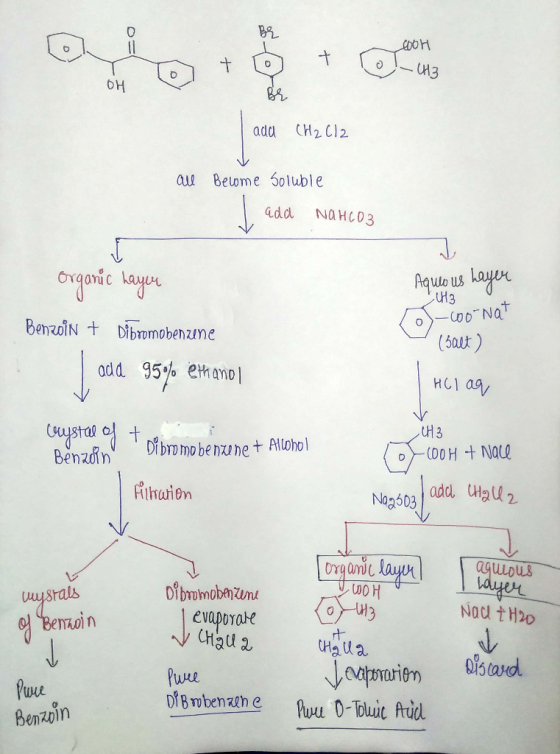 O
OH
+
Br
Br
+
COOH
CH3
add CH2Cl2
all Become Soluble
add NaHCO3
Organic Layer
Aqueous Layer
CH3
COO⁻Na⁺
(Salt)
Benzoin + Dibromobenzene
add 95% ethanol
HCl aq
Crystal of Benzoin + Dibromobenzene + Alcohol
CH3
COOH + NaCl
Filtration
Na2SO3
add CH2Cl2
organic layer
aqueous layer
COOH
CH3
+
CH2Cl2
NaCl + H2O
crystals of Benzoin
Dibromobenzene
evaporate CH2Cl2
evaporation
Discard
Pure Benzoin
Pure DiBrobenzene
Pure O-Toluic Acid